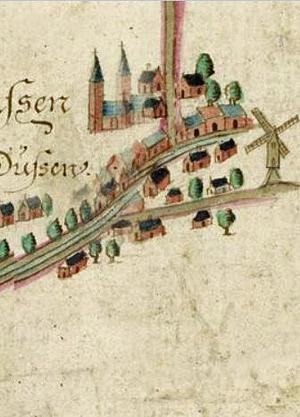 ssen
Dussen.